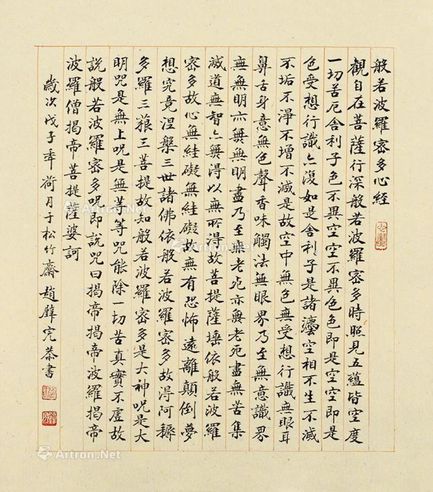 般若波羅蜜多心經
觀自在菩薩行深般若波羅密多時照見五蘊皆空度
一切苦厄舍利子色不異空空不異色色即是空空即是
色受想行識亦復如是舍利子是諸灋空相不生不滅
不垢不淨不增不減是故空中無色無受想行識無眼耳
鼻舌身意無色聲香味觸法無眼界乃至無意識界
無無明亦無無明盡乃至無老死亦無老死盡無苦集
滅道無智亦無得以無所得故菩提薩埵依般若波羅
密多故心無絓礙無絓礙故無有恐怖遠離顛倒夢
想究竟涅槃三世諸佛依般若波羅密多故得阿耨
多羅三藐三菩提故知般若波羅密多是大神呪是大
明呪是無上呪是無等等呪能除一切苦真實不虛故
說般若波羅密多呪即說呪曰揭帝揭帝波羅揭帝
波羅僧揭帝菩提薩婆訶
歲次戊子年荷月于松竹齋趙完恭書
Artron.Net